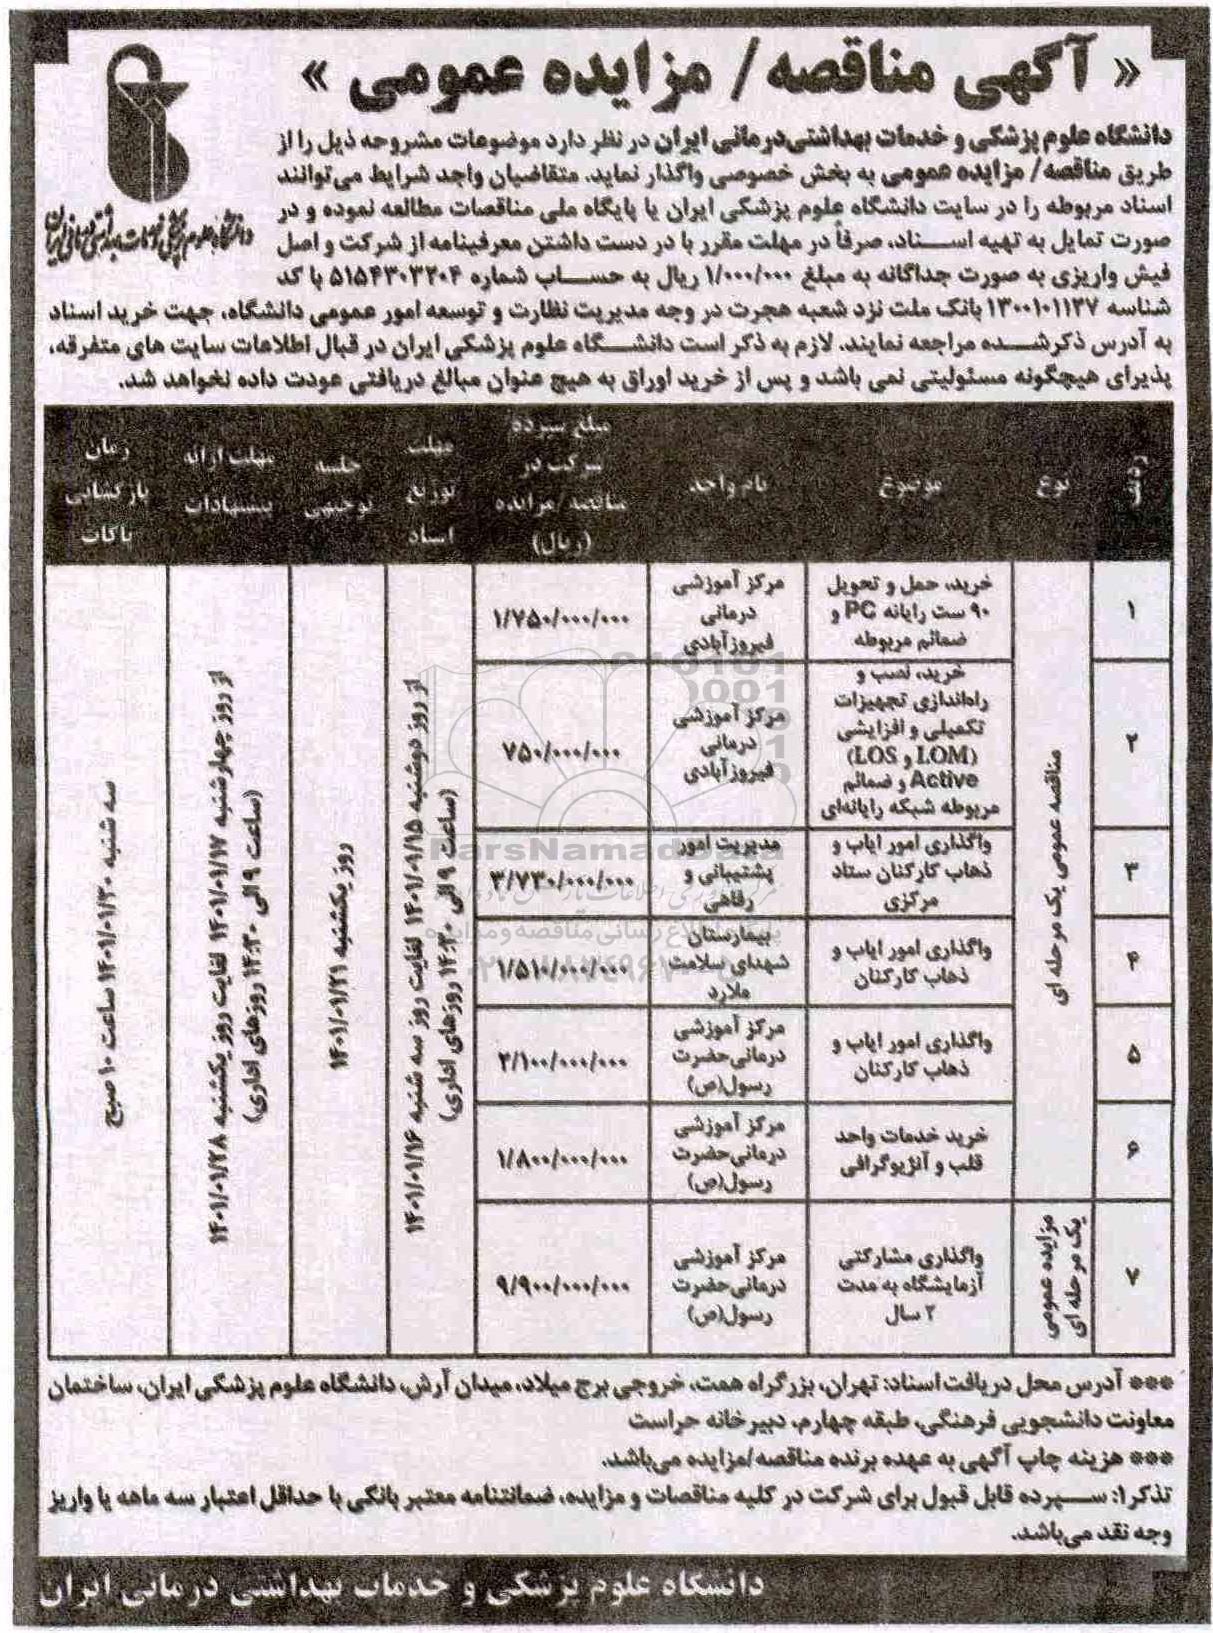 « آگهی مناقصه / مزایده عمومی »
دانشگاه علوم پزشکی و خدمات بهداشتی درمانی ایران
دانشگاه علوم پزشکی و خدمات بهداشتی‌درمانی ایران در نظر دارد موضوعات مشروحه ذیل را از
طریق مناقصه / مزایده عمومی به بخش خصوصی واگذار نماید. متقاضیان واجد شرایط می‌توانند
اسناد مربوطه را در سایت دانشگاه علوم پزشکی ایران یا پایگاه ملی مناقصات مطالعه نموده و در
صورت تمایل به تهیه اسناد، صرفاً در مهلت مقرر با در دست داشتن معرفینامه از شرکت و اصل
فیش واریزی به صورت جداگانه به مبلغ ۱/۰۰۰/۰۰۰ ریال به حساب شماره ۵۱۵۴۳۰۳۲۰۴ با کد
شناسه ۱۳۰۰۱۰۱۱۳۷ بانک ملت نزد شعبه هجرت در وجه مدیریت نظارت و توسعه امور عمومی دانشگاه، جهت خرید اسناد
به آدرس ذکرشده مراجعه نمایند. لازم به ذکر است دانشگاه علوم پزشکی ایران در قبال اطلاعات سایت های متفرقه،
پذیرای هیچگونه مسئولیتی نمی باشد و پس از خرید اوراق به هیچ عنوان مبالغ دریافتی عودت داده نخواهد شد.
ردیف
نوع
موضوع
نام واحد
مبلغ سپرده
شرکت در
مناقصه/مزایده
(ریال)
مهلت
توزیع
اسناد
جلسه
توجیهی
مهلت ارائه
پیشنهادات
زمان
بازگشائی
پاکات
۱
خرید، حمل و تحویل
۹۰ ست رایانه PC و
ضمائم مربوطه
مرکز آموزشی
درمانی
فیروزآبادی
۱/۷۵۰/۰۰۰/۰۰۰
۲
خرید، نصب و
راه‌اندازی تجهیزات
تکمیلی و افزایشی
(LOM و LOS)
Active و ضمائم
مربوطه شبکه رایانه‌ای
مرکز آموزشی
درمانی
فیروزآبادی
۷۵۰/۰۰۰/۰۰۰
۳
واگذاری امور ایاب و
ذهاب کارکنان ستاد
مرکزی
مدیریت امور
پشتیبانی و
رفاهی
۳/۷۳۰/۰۰۰/۰۰۰
۴
واگذاری امور ایاب و
ذهاب کارکنان
بیمارستان
شهدای سلامت
ملارد
۱/۵۱۰/۰۰۰/۰۰۰
۵
واگذاری امور ایاب و
ذهاب کارکنان
مرکز آموزشی
درمانی‌حضرت
رسول(ص)
۲/۱۰۰/۰۰۰/۰۰۰
۶
خرید خدمات واحد
قلب و آنژیوگرافی
مرکز آموزشی
درمانی‌حضرت
رسول(ص)
۱/۸۰۰/۰۰۰/۰۰۰
۷
واگذاری مشارکتی
آزمایشگاه به مدت
۲ سال
مرکز آموزشی
درمانی‌حضرت
رسول(ص)
۹/۹۰۰/۰۰۰/۰۰۰
مناقصه عمومی یک مرحله ای
مزایده عمومی
یک مرحله ای
از روز دوشنبه ۱۴۰۱/۰۱/۱۵ لغایت روز سه شنبه ۱۴۰۱/۰۱/۱۶
(ساعت ۹ الی ۱۴:۳۰ روزهای اداری)
روز یکشنبه ۱۴۰۱/۰۱/۲۱
از روز چهارشنبه ۱۴۰۱/۰۱/۱۷ لغایت روز یکشنبه ۱۴۰۱/۰۱/۲۸
(ساعت ۹ الی ۱۴:۳۰ روزهای اداری)
سه شنبه ۱۴۰۱/۰۱/۳۰ ساعت ۱۰ صبح
ParsNamadData
*** آدرس محل دریافت اسناد: تهران، بزرگراه همت، خروجی برج میلاد، میدان آرش، دانشگاه علوم پزشکی ایران، ساختمان
معاونت دانشجویی فرهنگی، طبقه چهارم، دبیرخانه حراست
*** هزینه چاپ آگهی به عهده برنده مناقصه/مزایده می‌باشد.
تذکر۱: سپرده قابل قبول برای شرکت در کلیه مناقصات و مزایده، ضمانتنامه معتبر بانکی با حداقل اعتبار سه ماهه یا واریز
وجه نقد می‌باشد.
دانشگاه علوم پزشکی و خدمات بهداشتی درمانی ایران